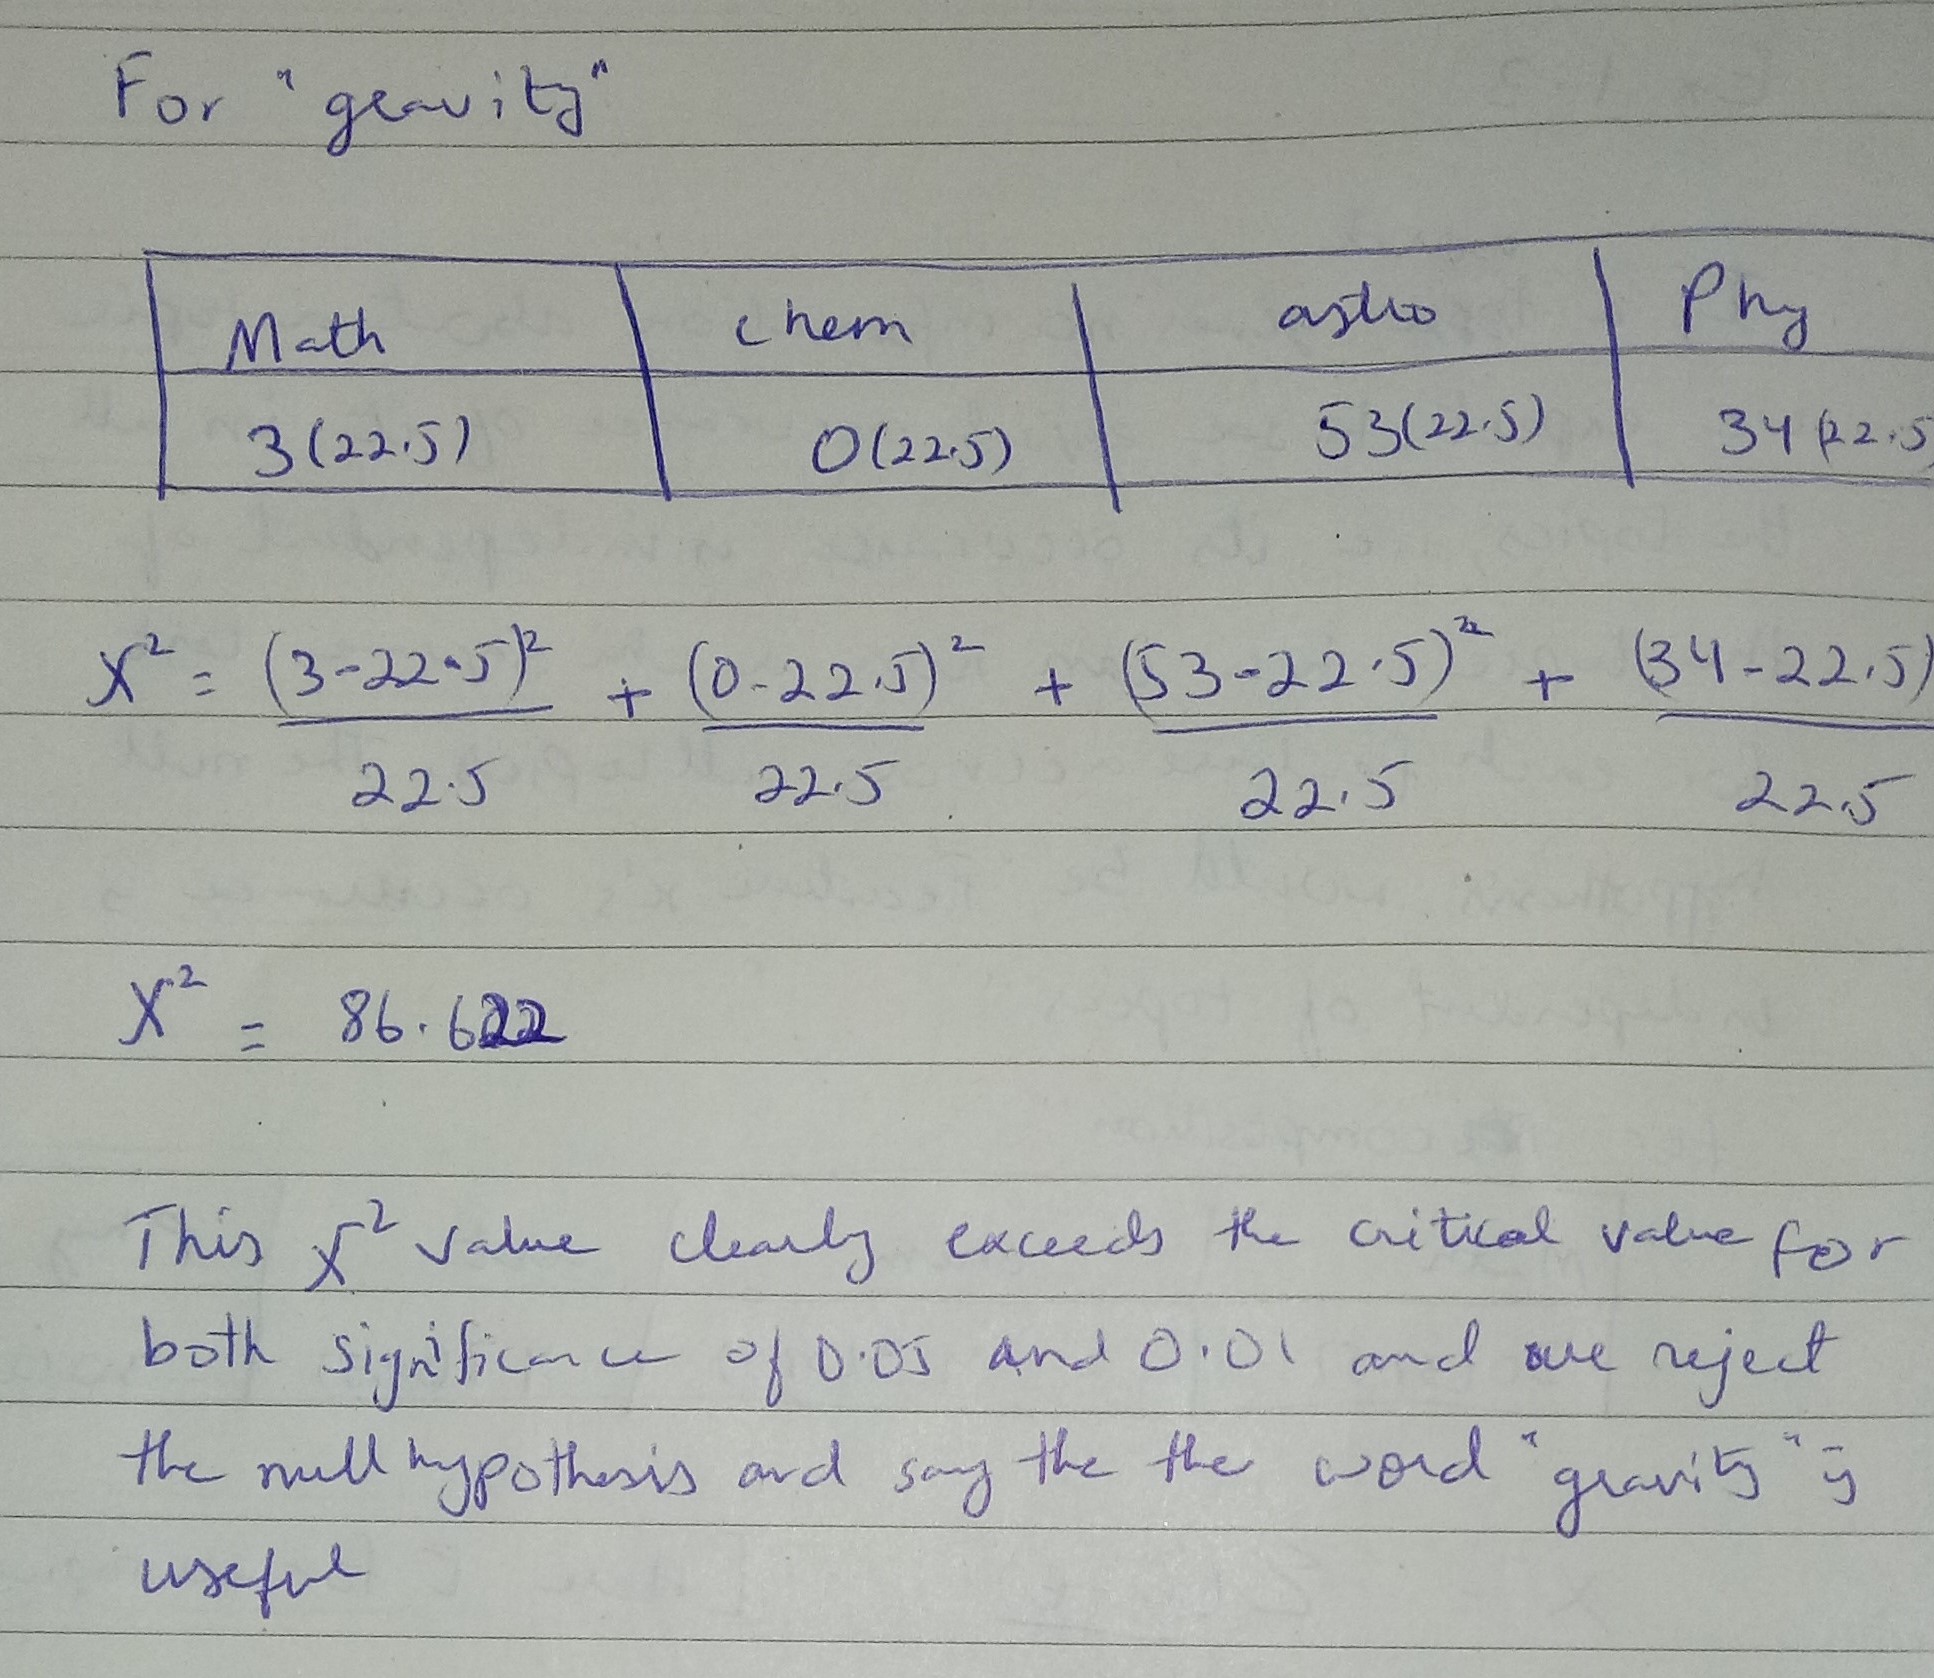 For "gravity"
Math chem astro Phy
3(22.5) 0(22.5) 53(22.5) 34(22.5
X² = (3-22.5)² + (0-22.5)² + (53-22.5)² + (34-22.5)
22.5 22.5 22.5 22.5
X² = 86.622
This X² value clearly exceeds the critical value for
both significance of 0.05 and 0.01 and we reject
the null hypothesis and say the the word "gravity" is
useful